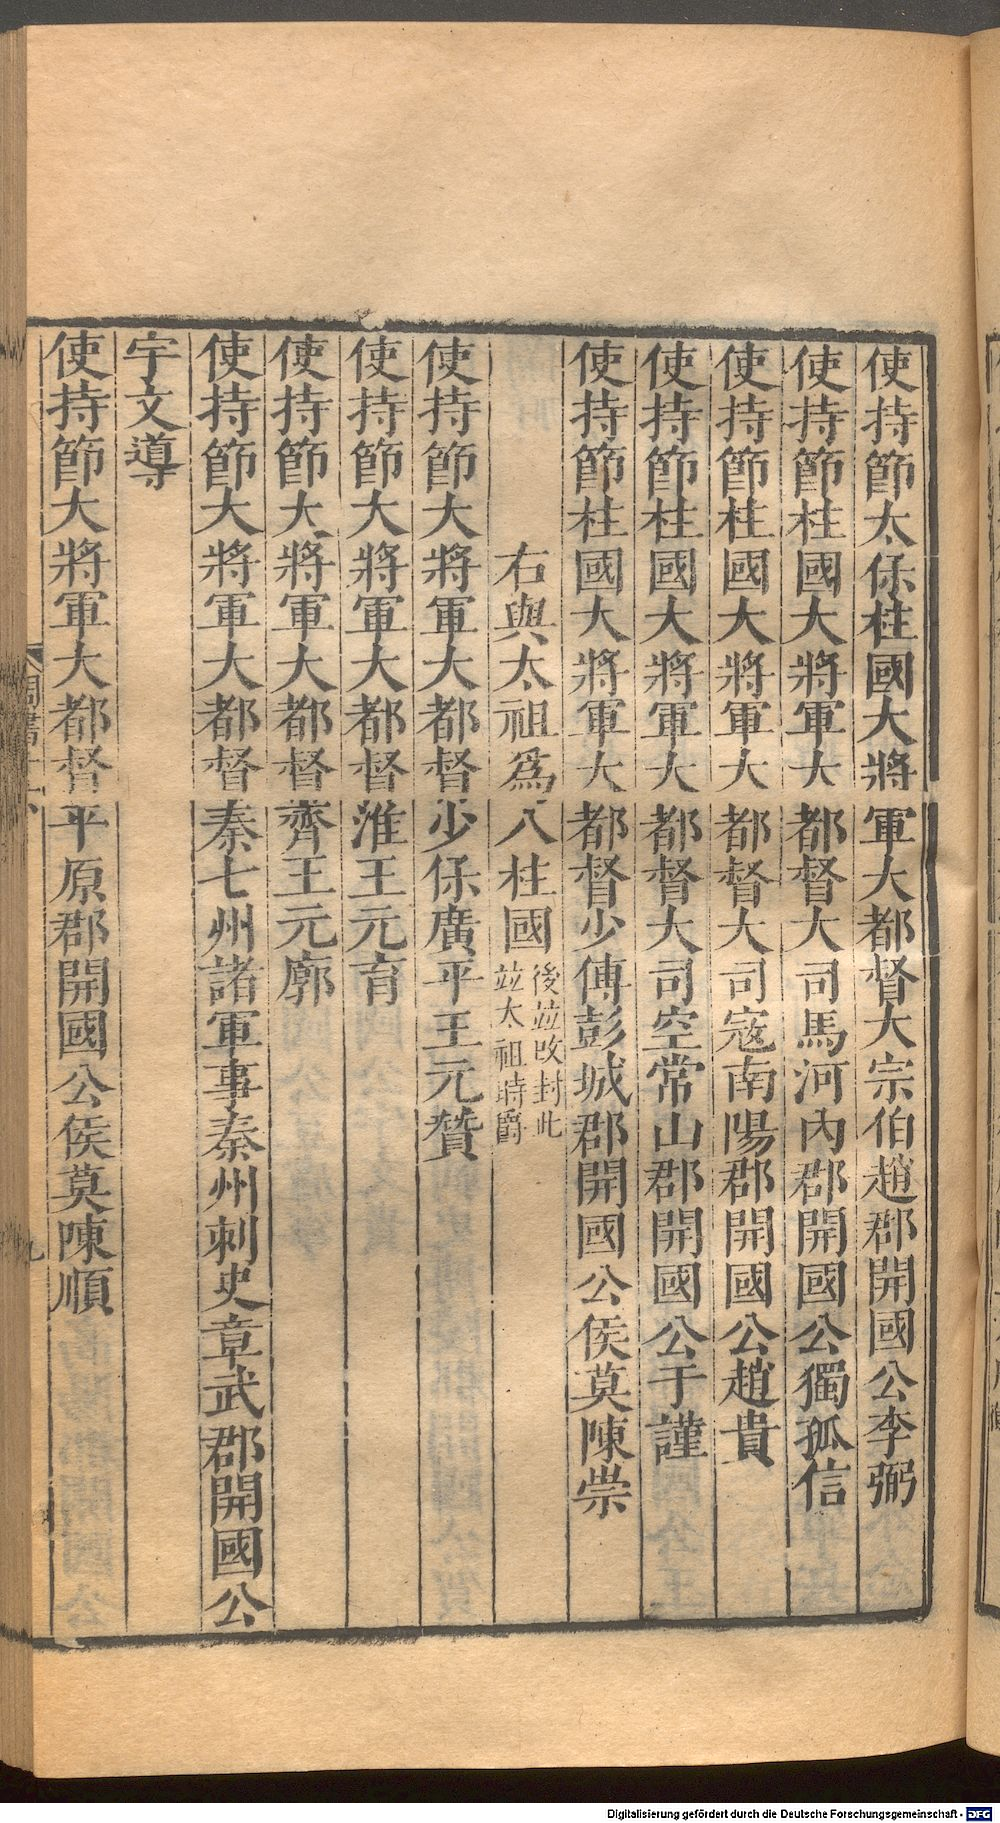 使持節太保柱國大將軍大都督大宗伯趙郡開國公李弼
使持節柱國大將軍大都督大司馬河內郡開國公獨孤信
使持節柱國大將軍大都督大司寇南陽郡開國公趙貴
使持節柱國大將軍大都督大司空常山郡開國公于謹
使持節柱國大將軍大都督少傅彭城郡開國公侯莫陳崇
右與太祖爲八柱國後並改封此並太祖時爵
使持節大將軍大都督少保廣平王元贊
使持節大將軍大都督淮王元育
使持節大將軍大都督齊王元廓
使持節大將軍大都督秦七州諸軍事秦州刺史章武郡開國公
宇文導
使持節大將軍大都督平原郡開國公侯莫陳順
Digitalisierung gefördert durch die Deutsche Forschungsgemeinschaft - DFG